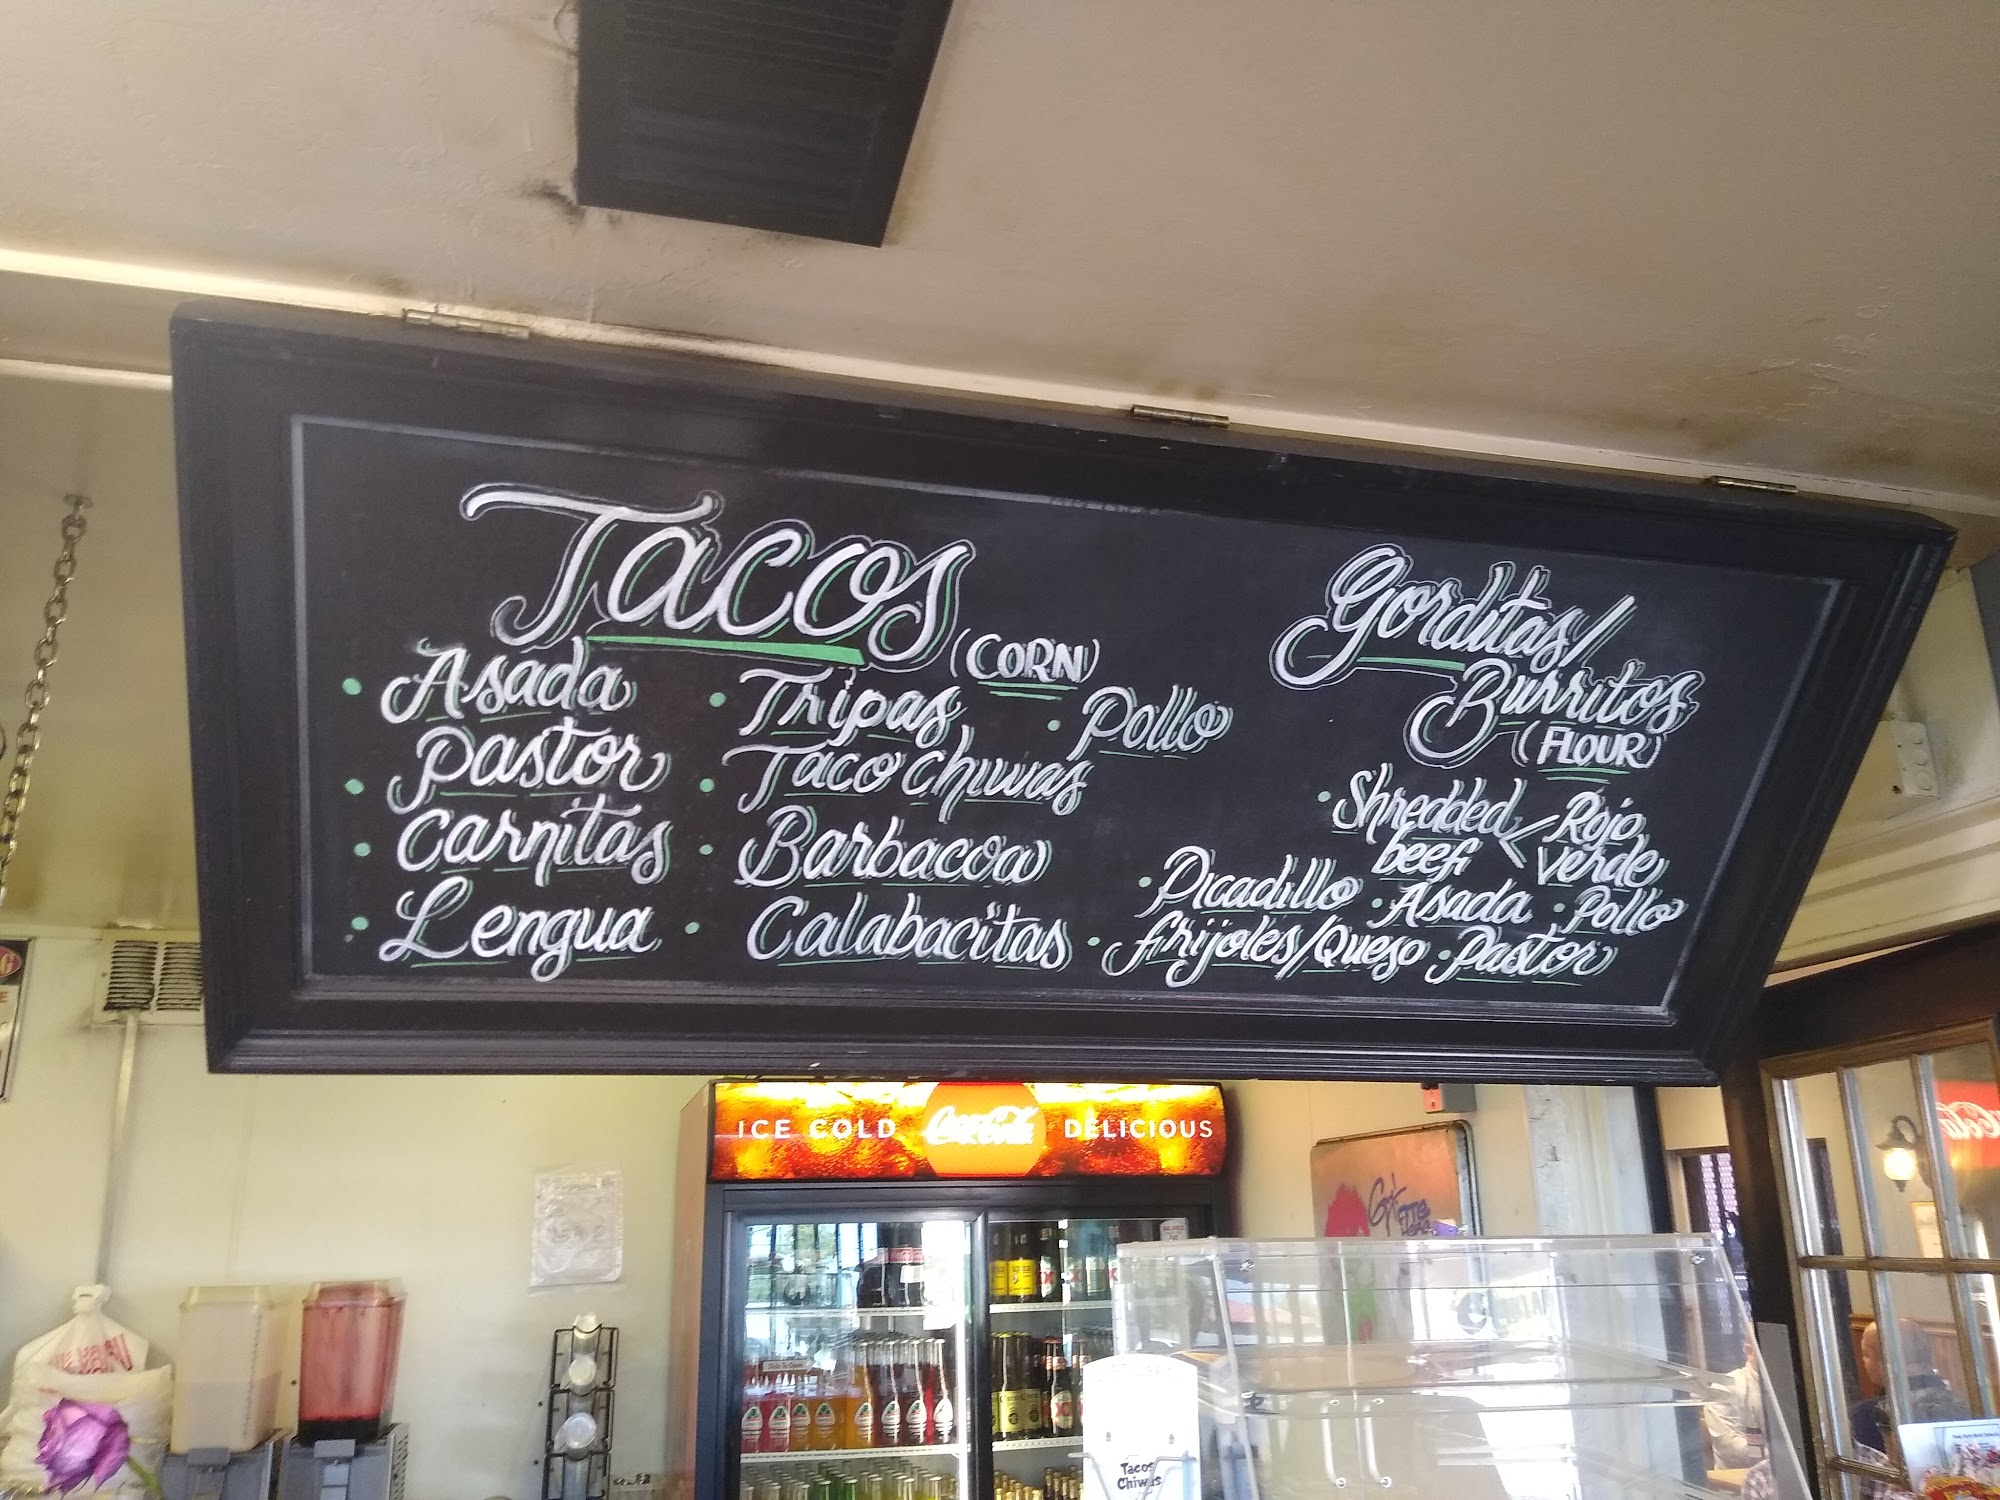 Tacos
(CORN)
• Asada
• Pastor
• Carnitas
• Lengua
• Tripas
• Taco Chiwas
• Barbacoa
• Calabacitas
• Pollo
Gorditas/
Burritos
(FLOUR)
• Shredded beef < Rojo Verde
• Picadillo • Asada • Pollo
• frijoles/Queso • Pastor
ICE COLD Coca-Cola DELICIOUS
Tacos
Chiwas